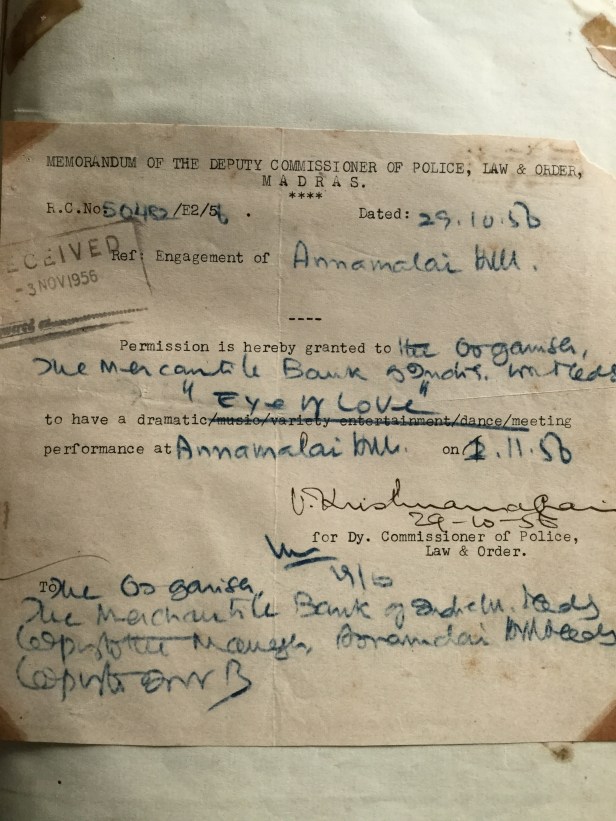 MEMORANDUM OF THE DEPUTY COMMISSIONER OF POLICE, LAW & ORDER,
MADRAS.
****
R.C.No 50452/E2/56 .
Dated: 29.10.56
ECEIVED
-3 NOV 1956
Ref: Engagement of Annamalai Hall.
----
Permission is hereby granted to the Organiser,
The Mercantile Bank of India. Madras
"EYE OF LOVE"
to have a dramatic/music/variety entertainment/dance/meeting
performance at Annamalai Hall. on 2.11.56
V. Krishnama
29-10-56
for Dy. Commissioner of Police,
Law & Order.
To The Organiser,
The Merchantile Bank of India Madras
Copy to the Manager, Annamalai Hall Madras
Copy to